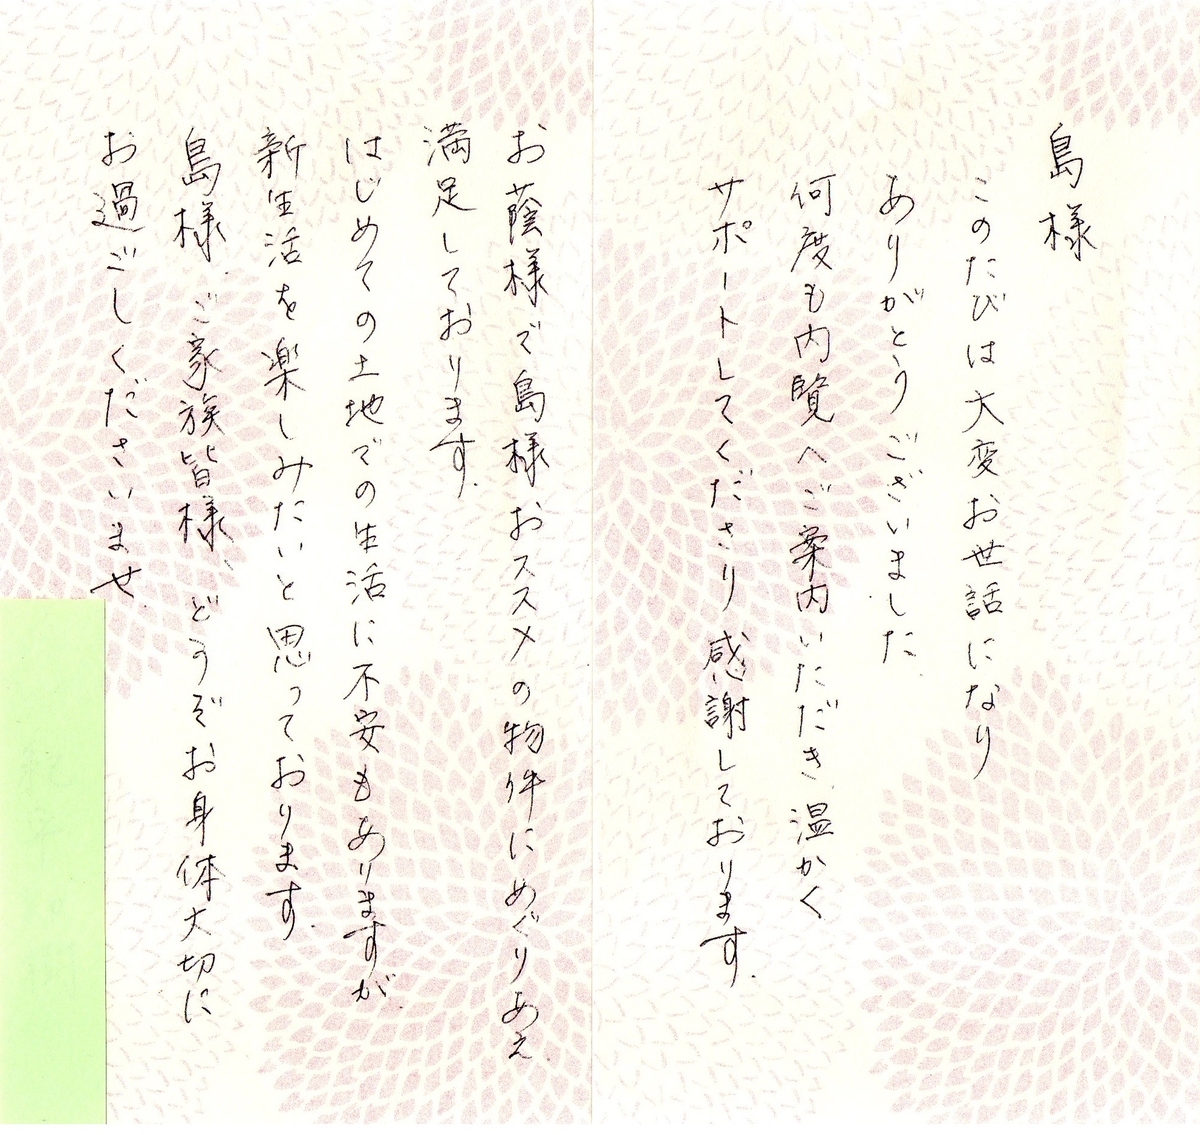 島様
このたびは大変お世話になり
ありがとうございました.
何度も内覧へご案内いただき、温かく
サポートしてくださり 感謝しております.
お蔭様で島様おススメの物件にめぐりあえ、
満足しております.
はじめての土地での生活に不安もありますが、
新生活を楽しみたいと思っております.
島様、ご家族皆様、どうぞお身体大切に
お過ごしくださいませ.